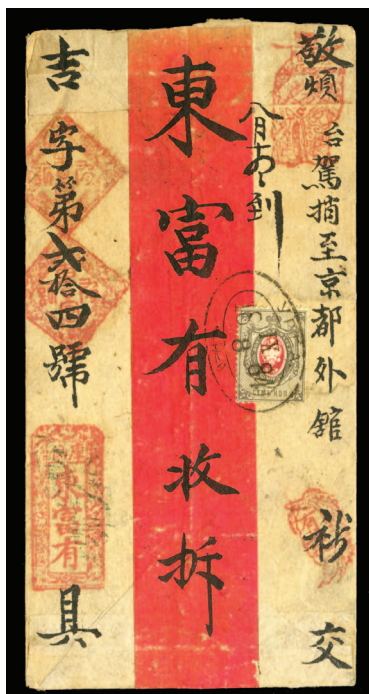 敬煩
台駕捎至京都外館
交
八月
到
東富有收拆
吉
字第弍拾四號
東富有
具